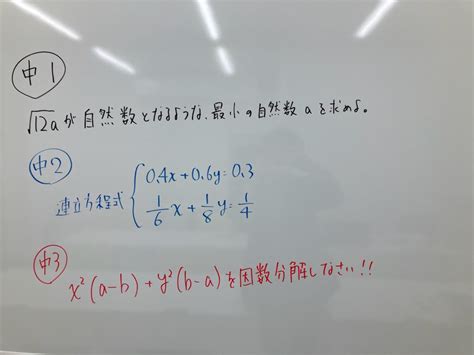 中1
√12a が自然数となるような、最小の自然数 a を求めよ。
中2
連立方程式 { 0.4x+0.6y=0.3
1/6 x + 1/8 y = 1/4
中3
x²(a-b)+y²(b-a)を因数分解しなさい!!